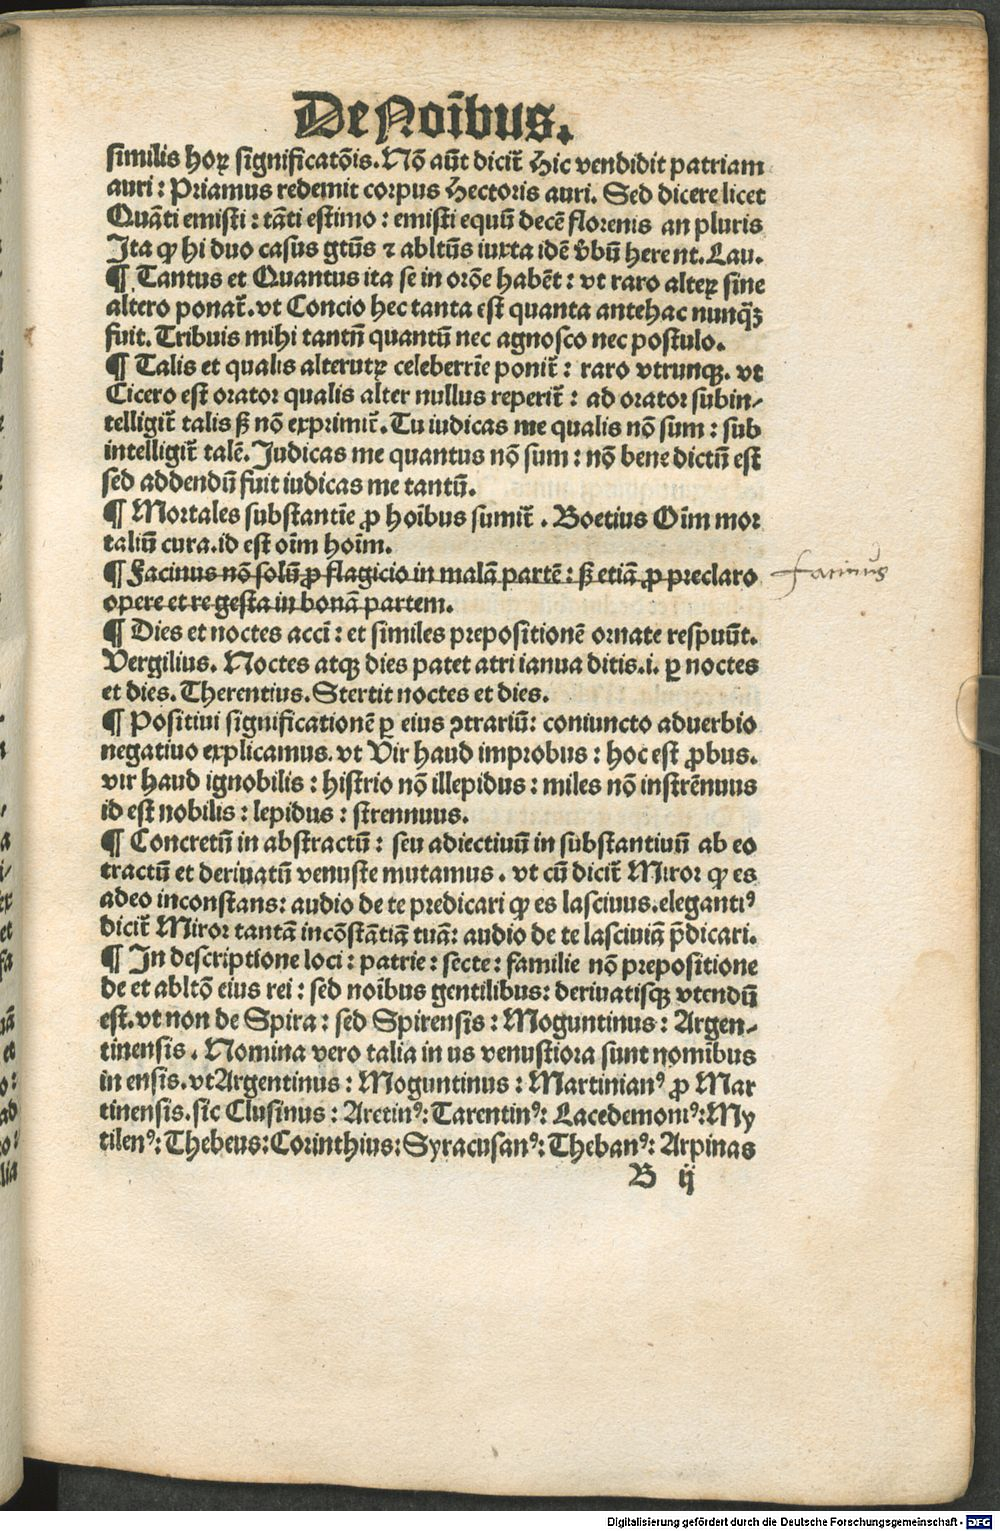 De Noĩbus.
similis hoꝝ significatõis. Nõ aũt dicit̃ Hic vendidit patriam
auri: Priamus redemit corpus Hectoris auri. Sed dicere licet
Quãti emisti: tãti estimo: emisti equũ decẽ florenis an pluris
Ita ꝙ hi duo casus gtũs ⁊ abltũs iuxta idẽ v̄bũ herent. Lau.
¶ Tantus et Quantus ita se in orõe habẽt: vt raro alteꝝ sine
altero ponat̃. vt Concio hec tanta est quanta antehac nunq̃ꝫ
fuit. Tribuis mihi tantũ quantũ nec agnosco nec postulo.
¶ Talis et qualis alterutꝝ celeberrĩe ponit̃: raro vtrunqꝫ. vt
Cicero est orator qualis alter nullus reperit̃: ad orator subin-
telligit̃ talis ꝭ nõ exprimit̃. Tu iudicas me qualis nõ sum: sub
intelligit̃ talẽ. Iudicas me quantus nõ sum: nõ bene dictũ est
sed addendũ fuit iudicas me tantũ.
¶ Mortales substantĩe ꝓ hoĩbus sumit̃. Boetius Oĩm mor
taliũ cura. id est oĩm hoĩm.
¶ Facinus nõ solũ ꝓ flagicio in malã partẽ: ꝭ etiã ꝓ preclaro
opere et re gesta in bonã partem.
facinus
¶ Dies et noctes acci: et similes prepositionẽ ornate respuũt.
Vergilius. Noctes atqꝫ dies patet atri ianua ditis. i. ꝑ noctes
et dies. Therentius. Stertit noctes et dies.
¶ Positiui significationẽ ꝑ eius ꝯtrariũ: coniuncto aduerbio
negatiuo explicamus. vt Vir haud improbus: hoc est ꝓbus.
vir haud ignobilis: histrio nõ illepidus: miles nõ instrẽnuus
id est nobilis: lepidus: strennuus.
¶ Concretũ in abstractũ: seu adiectiuũ in substantiuũ ab eo
tractũ et deriuatũ venuste mutamus. vt cũ dicit̃ Miror ꝙ es
adeo inconstans: audio de te predicari ꝙ es lasciuus. elegantiꝰ
dicit̃ Miror tantã incõstãtiã tuã: audio de te lasciuiã p̃dicari.
¶ In descriptione loci: patrie: secte: familie nõ prepositione
de et abltõ eius rei: sed noĩbus gentilibus: deriuatisqꝫ vtendũ
est. vt non de Spira: sed Spirensis: Moguntinus: Argen-
tinensis. Nomina vero talia in us venustiora sunt nomibus
in ensis. vt Argentinus: Moguntinus: Martinianꝰ ꝓ Mar
tinensis. sic Clusinus: Aretinꝰ: Tarentinꝰ: Lacedemoniꝰ: My
tilenꝰ: Thebeus: Corinthius: Syracusanꝰ: Thebanꝰ: Arpinas
B ij
Digitalisierung gefördert durch die Deutsche Forschungsgemeinschaft - DFG